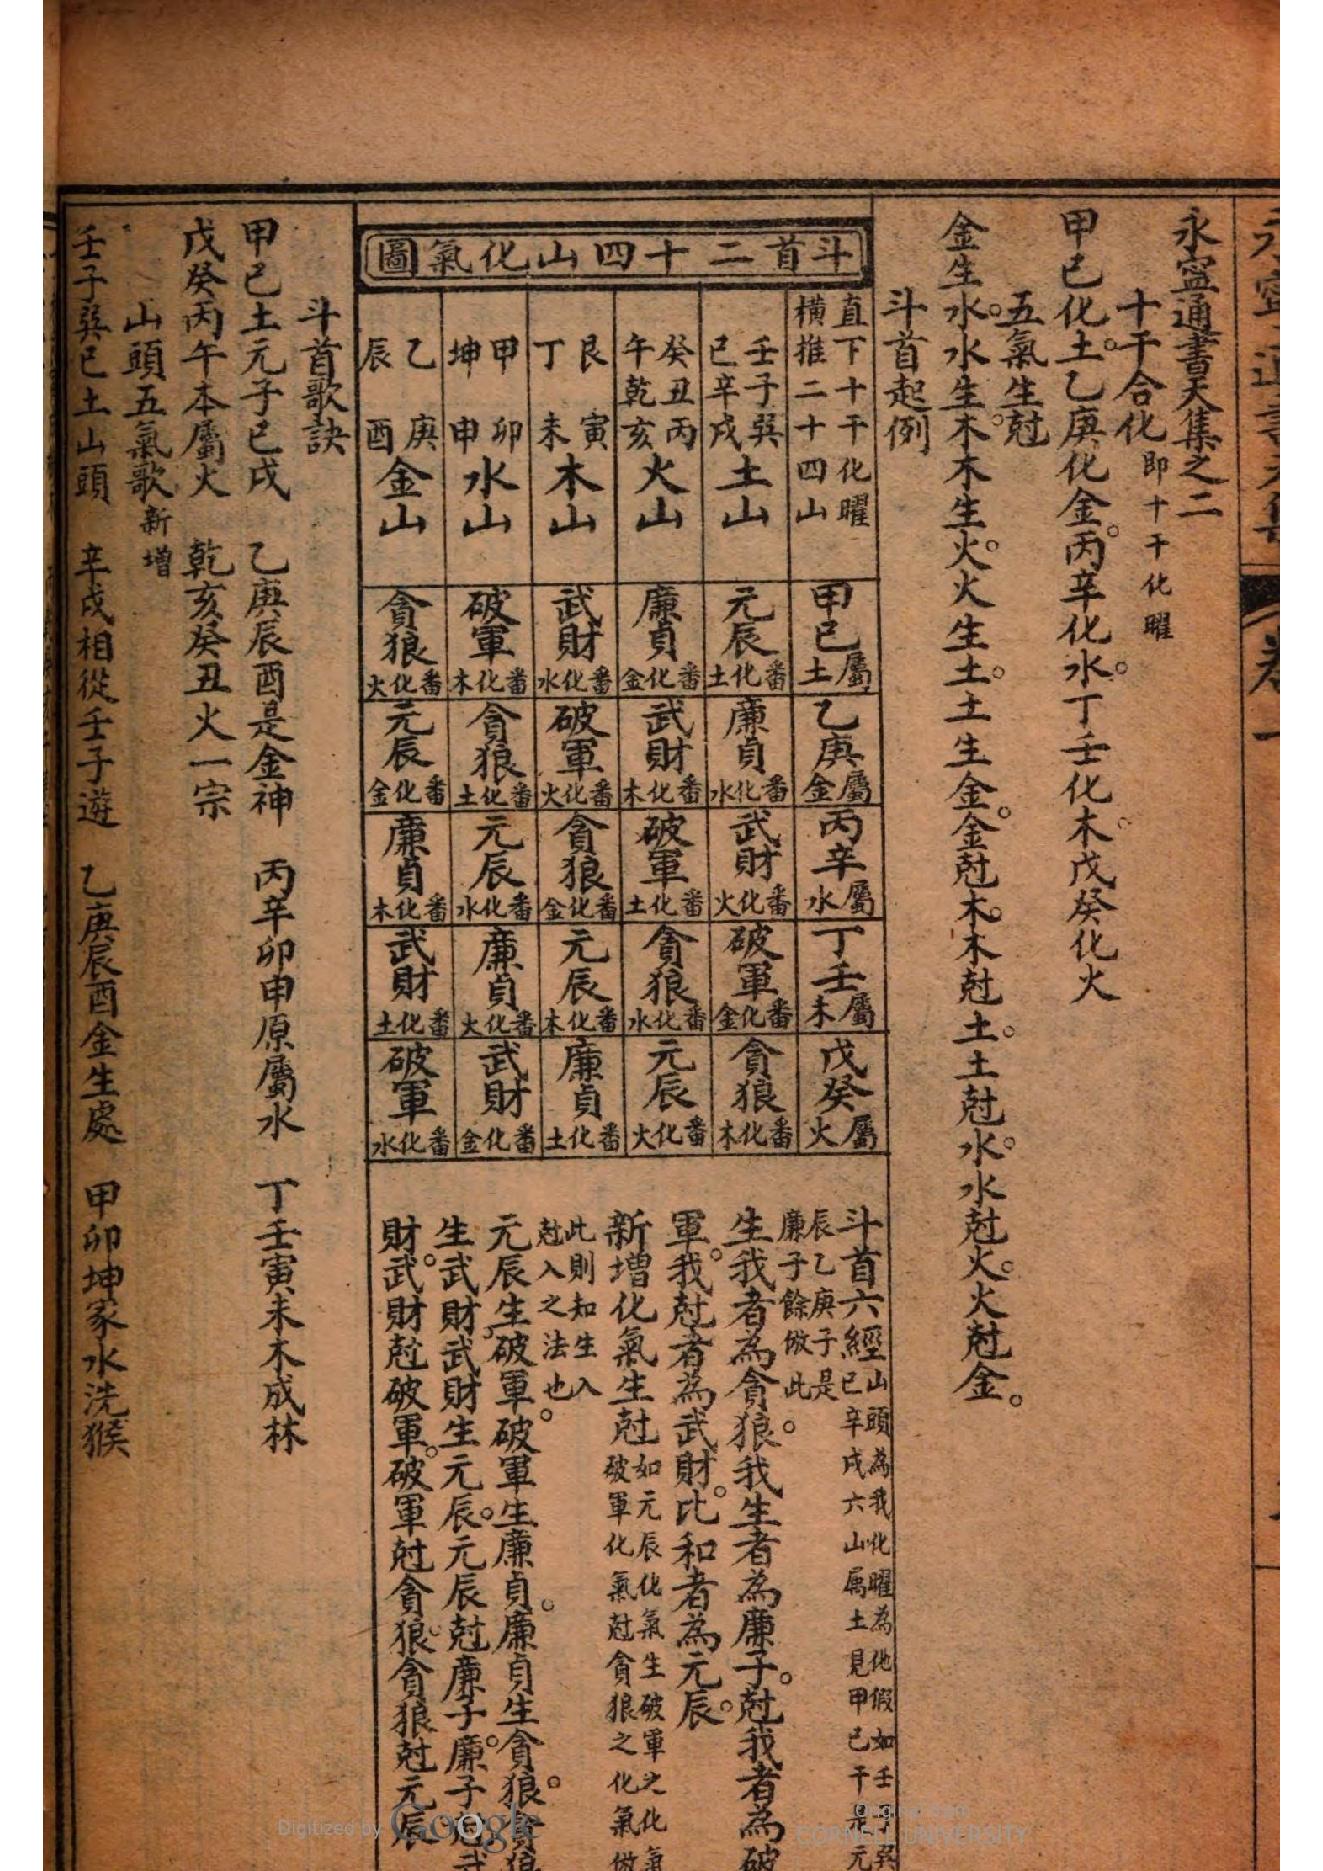 永寧通書天集之二
十干合化 即十干化曜
甲己化土。乙庚化金。丙辛化水。丁壬化木。戊癸化火
五氣生尅
金生水。水生木。木生火。火生土。土生金。金尅木。木尅土。土尅水。水尅火。火尅金。
斗首起例
斗首二十四山化氣圖
直下十干化曜
橫推二十四山
甲己屬土
乙庚屬金
丙辛屬水
丁壬屬木
戊癸屬火
壬子巽巳辛戌土山
元辰番化土
廉貞番化水
武財番化火
破軍番化金
貪狼番化木
癸丑丙午乾亥火山
廉貞番化金
武財番化木
破軍番化土
貪狼番化水
元辰番化火
艮寅丁未木山
武財番化水
破軍番化火
貪狼番化金
元辰番化木
廉貞番化土
甲卯坤申水山
破軍番化木
貪狼番化土
元辰番化水
廉貞番化火
武財番化金
乙庚辰酉金山
貪狼番化火
元辰番化金
廉貞番化木
武財番化土
破軍番化水
斗首六經 山頭為我化曜為他假如壬子巽
巳辛戌六山属土見甲己干是元
辰乙庚子是
廉子餘倣此。
生我者為貪狼。我生者為廉子。尅我者為破
軍。我尅者為武財。比和者為元辰。
新增化氣生尅 如元辰化氣生破軍之化氣
破軍化氣尅貪狼之化氣倣
此則知生入
尅入之法也。
元辰生破軍。破軍生廉貞。廉貞生貪狼。貪狼
生武財。武財生元辰。元辰尅廉子。廉子尅武
財。武財尅破軍。破軍尅貪狼。貪狼尅元辰
斗首歌訣
甲己土元子巳戌 乙庚辰酉是金神 丙辛卯申原屬水 丁壬寅未木成林
戊癸丙午本屬火 乾亥癸丑火一宗
山頭五氣歌 新增
壬子巽巳土山頭 辛戌相從壬子遊 乙庚辰酉金生處 甲卯坤家水洗猴
Digitized by Google
Original from
CORNELL UNIVERSITY